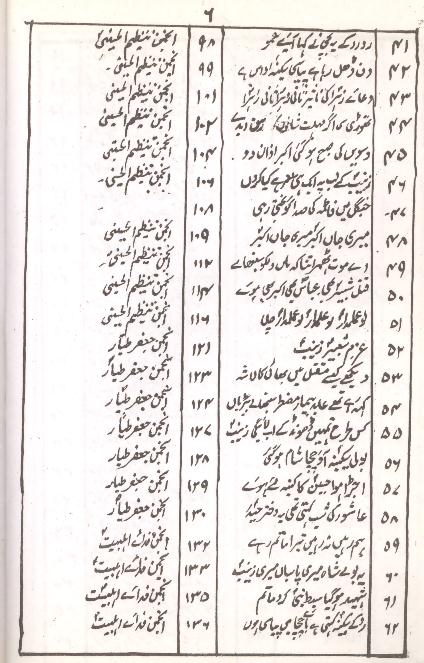 ۶
۴۱ رو رو کے یہ بچی نے کہا ۹۸ انجمن تنظیم الحسینی
۴۲ دن ڈھل رہا ہے پیاسی سکینہ اداس ہے ۹۹ انجمن تنظیم الحسینی
۴۳ دعائے زہرا کی ثانی زہرا ثانی زہرا ۱۰۱ انجمن تنظیم الحسینی
۴۴ تھوڑی سی اگر مہلت ۱۰۲ انجمن تنظیم الحسینی
۴۵ دسویں کی صبح ہو گئی اکبر اذان دو ۱۰۴ انجمن تنظیم الحسینی
۴۶ زینب کے لب پہ ایک ہی ہے کیا کروں ۱۰۶ انجمن تنظیم الحسینی
۴۷ جنگل میں فاطمہ کی صدا گونجتی رہی ۱۰۸
۴۸ میری جاں اکبر میری جاں اکبر ۱۰۹ انجمن تنظیم الحسینی
۴۹ اے موت ٹھہر جا کہ ماں ۱۱۲ انجمن تنظیم الحسینی
۵۰ قتل شبیر بھی عباس بھی اکبر بھی ہوئے ۱۱۴ انجمن تنظیم الحسینی
۵۱ لو علمدار لو علمدار لو علمدار چلے ۱۱۶ انجمن تنظیم الحسینی
۵۲ عزم شبیر زینب ۱۲۱ انجمن جعفر طیار
۵۳ دیکھے کیسے مقتل میں بھائی کا لاشہ ۱۲۳ انجمن جعفر طیار
۵۴ کہتے تھے عابد بیمار سنبھالے بیڑیاں ۱۲۴ انجمن جعفر طیار
۵۵ کس طرح تمہیں ڈھونڈ کے اب لائیگی زینب ۱۲۷ انجمن جعفر طیار
۵۶ بولی سکینہ آؤ چچا شام ہو گئی ۱۲۸ انجمن جعفر طیار
۵۷ اجڑا ہوا حسین کا کنبہ لئے ہوئے ۱۲۹ انجمن جعفر طیار
۵۸ عاشور کی شب کہتی تھی یہ دختر حیدر ۱۳۰ انجمن جعفر طیار
۵۹ ہم رہیں نہ رہیں تیرا ماتم رہے ۱۳۲ انجمن فدائے اہلبیت
۶۰ یہ بولے شاہ میری پاسباں میری زینب ۱۳۳ انجمن فدائے اہلبیت
۶۱ شہید ہو گیا سید نبی کرو ماتم ۱۳۵ انجمن فدائے اہلبیت
۶۲ رو کے سکینہ کہتی ہے آؤ چچا میں پیاسی ہوں ۱۳۶ انجمن فدائے اہلبیت